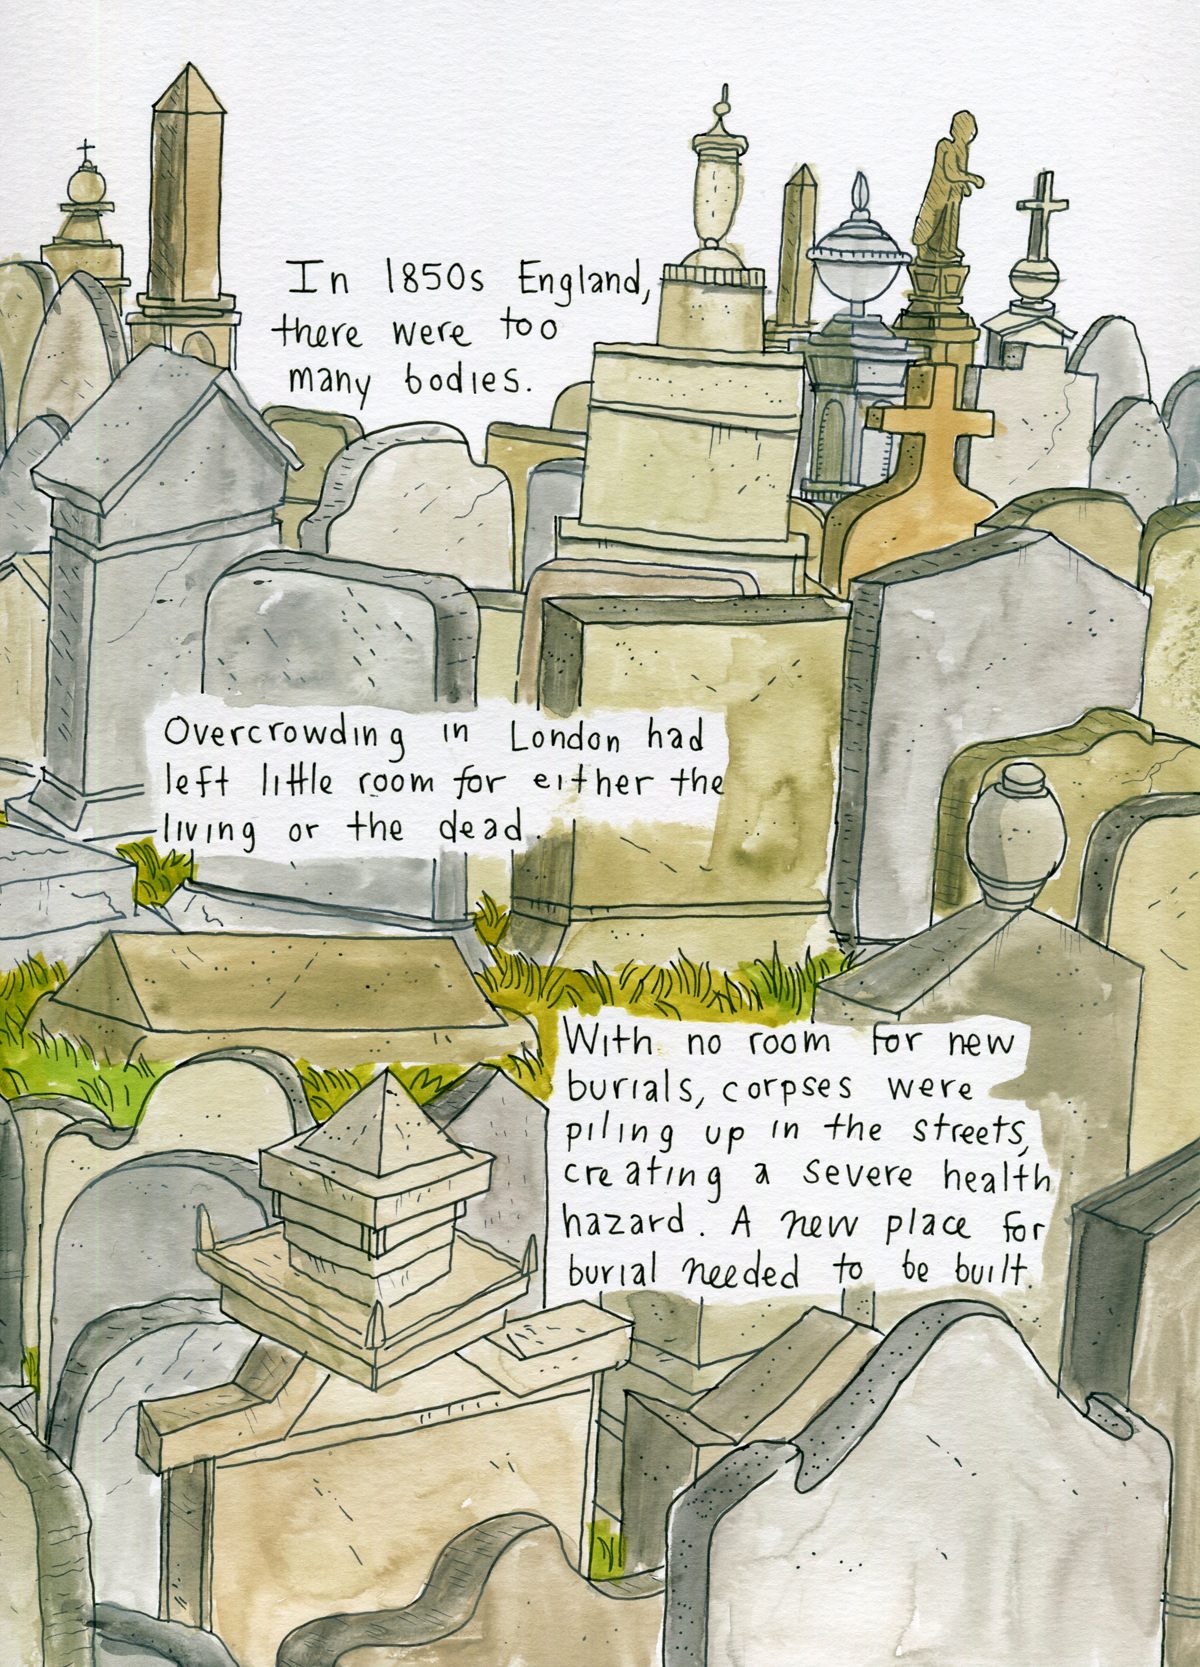 In 1850s England,
there were too
many bodies.
Overcrowding in London had
left little room for either the
living or the dead.
With no room for new
burials, corpses were
piling up in the streets,
creating a severe health
hazard. A new place for
burial needed to be built.